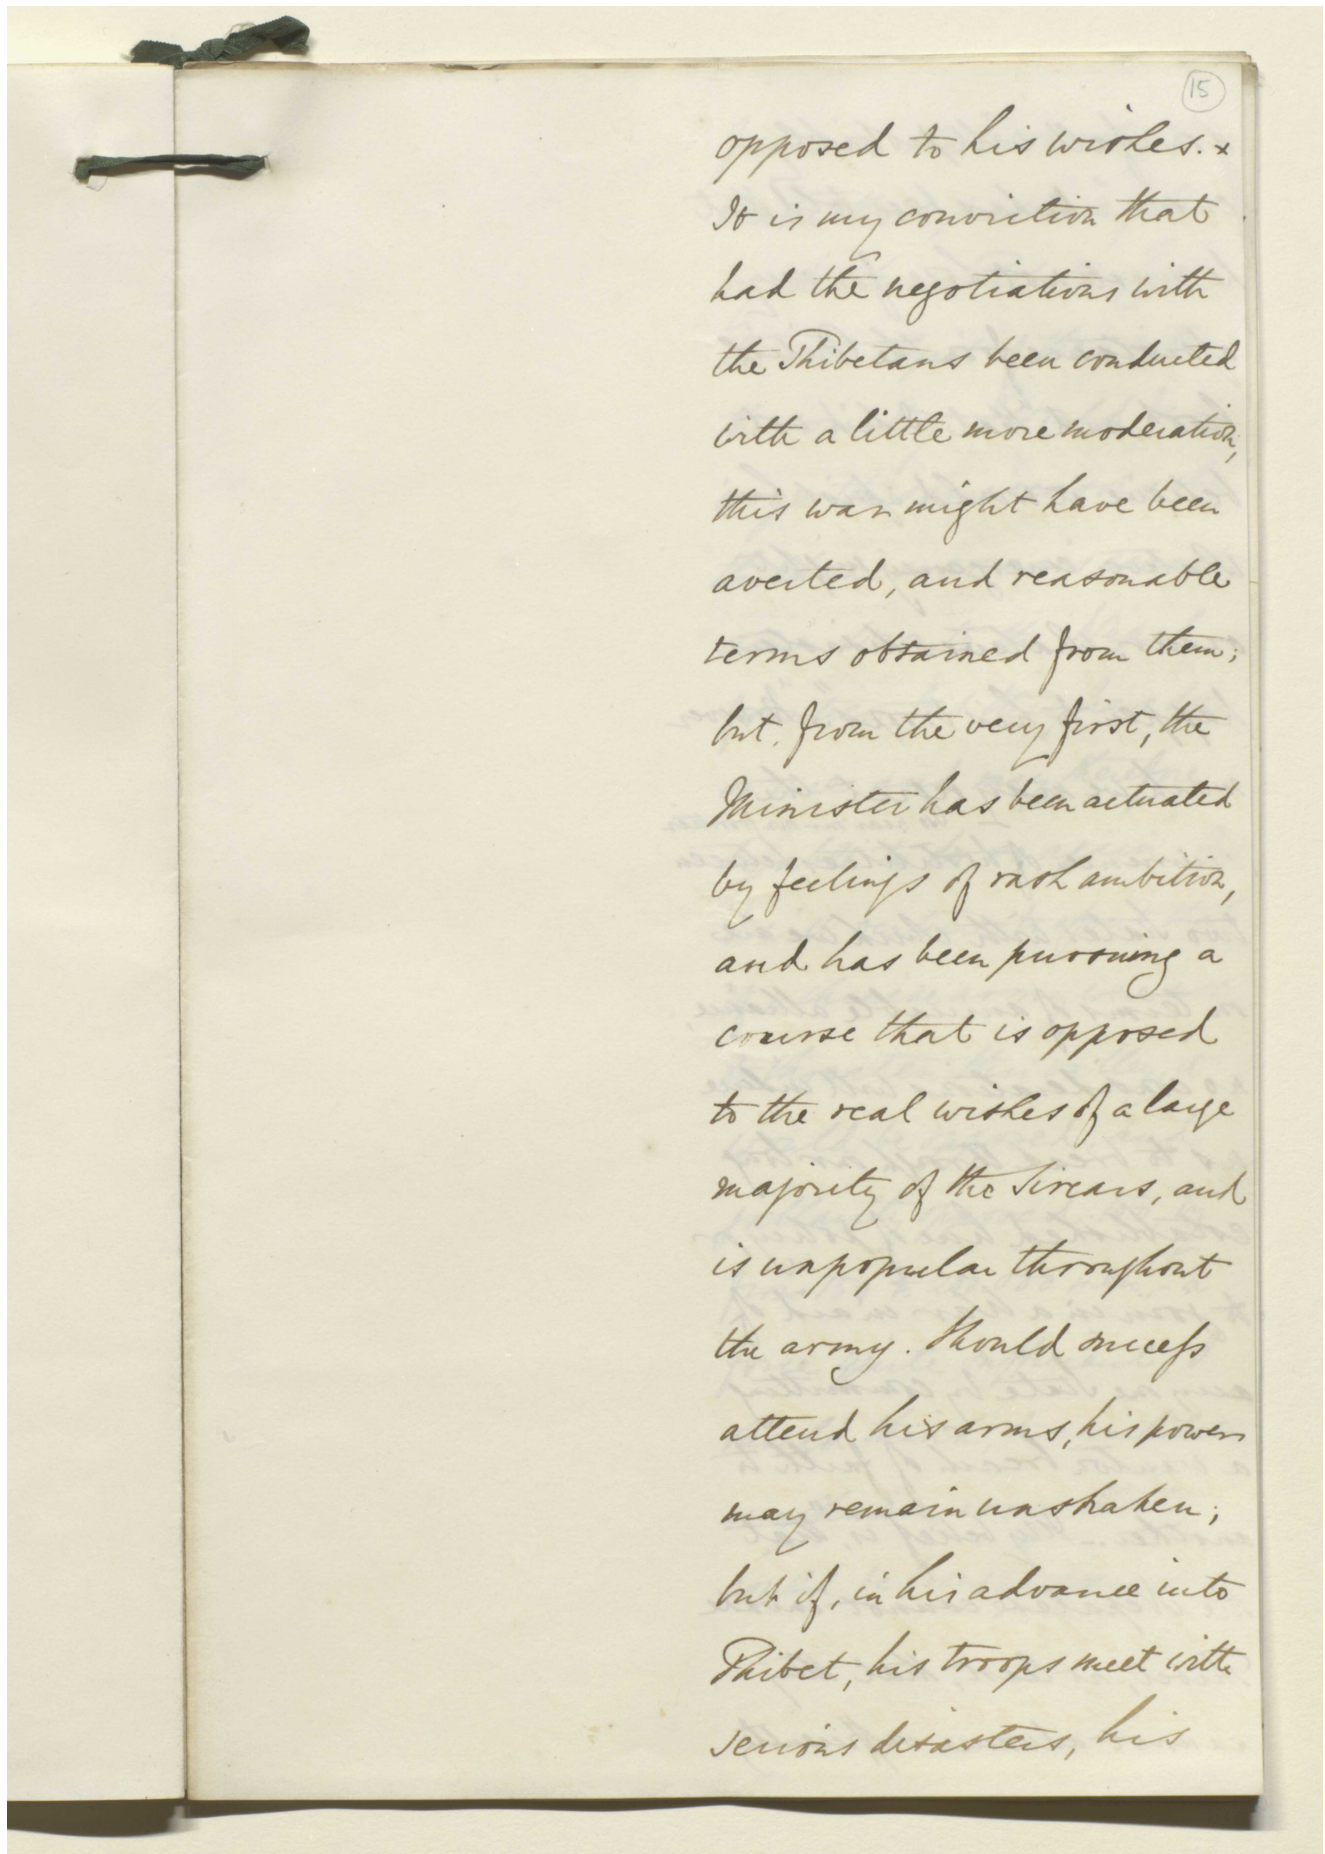 15
opposed to his wishes. x
It is my conviction that
had the negotiations with
the Thibetans been conducted
with a little more moderation,
this war might have been
averted, and reasonable
terms obtained from them;
but, from the very first, the
Minister has been actuated
by feelings of rash ambition,
and has been pursuing a
course that is opposed
to the real wishes of a large
majority of the Sircars, and
is unpopular throughout
the army. Should success
attend his arms, his power
may remain unshaken;
but if, in his advance into
Thibet, his troops meet with
serious disasters, his